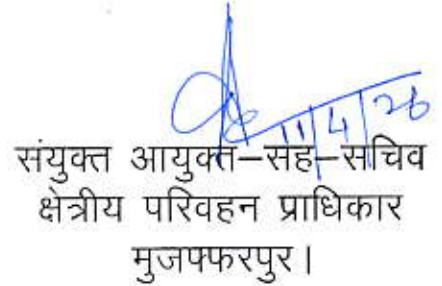 11/4/26
संयुक्त आयुक्त–सह–सचिव
क्षेत्रीय परिवहन प्राधिकार
मुजफ्फरपुर।